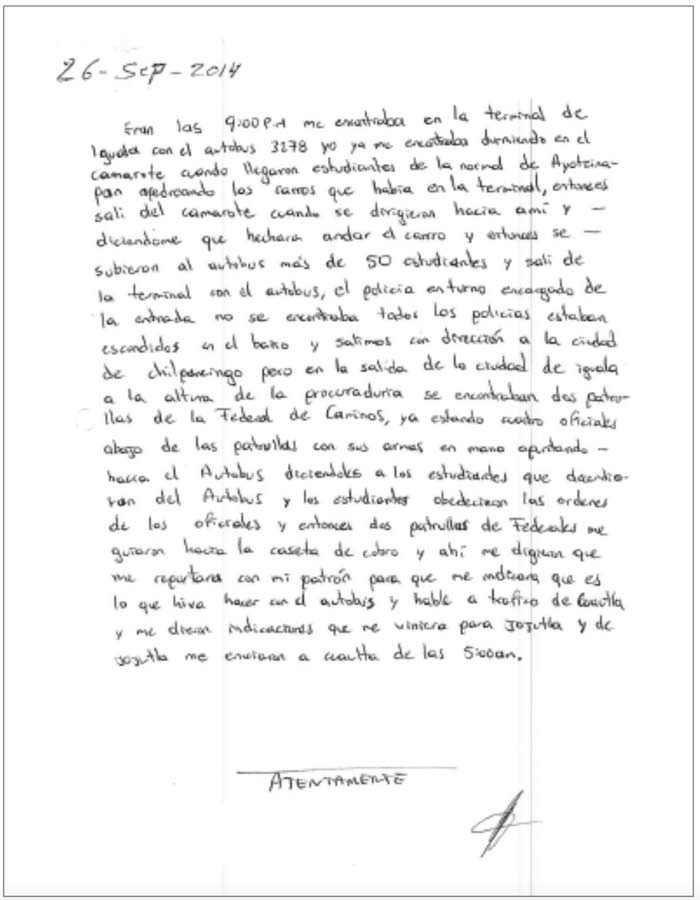 26-Sep-2014
Eran las 9:00 P.M me encontraba en la terminal de
Iguala con el autobus 3278 yo ya me encontraba durmiendo en el
camarote cuando llegaron estudiantes de la normal de Ayotzina-
pan apedreando los carros que habia en la terminal, entonces
sali del camarote cuando se dirigieron hacia ami y —
diciendome que hechara andar el carro y entonces se —
subieron al autobus más de 50 estudiantes y sali de
la terminal con el autobus, el policia en turno encargado de
la entrada no se encontraba todos los policias estaban
escondidos en el baño y salimos con dirección a la ciudad
de chilpancingo pero en la salida de la ciudad de iguala
a la altura de la procuraduria se encontraban dos patru-
llas de la Federal de Caminos, ya estando cuatro oficiales
abajo de las patrullas con sus armas en mano apuntando —
hacia el Autobus diciendoles a los estudiantes que decendie-
ran del Autobus y los estudiantes obedecieron las ordenes
de los oficiales y entonces dos patrullas de Federales me
guiaron hacia la caseta de cobro y ahí me digieron que
me reportara con mi patrón para que me indicara que es
lo que hiva hacer con el autobus y hable a trafico de Cuautla
y me dieron indicaciones que me viniera para jojutla y de
jojutla me enviaron a cuautla de las 5:00am.
ATENTAMENTE